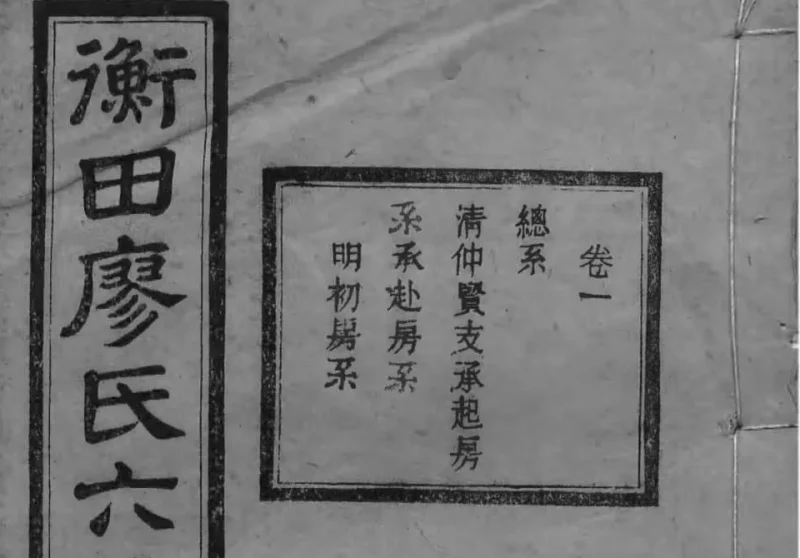 卷一
總系
清仲賢支承起房
系承赴房系
明初房系
衡田廖氏六